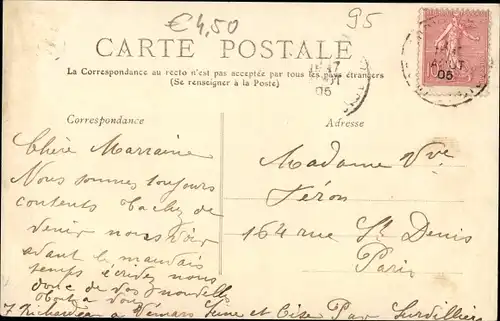 €4,50
95
CARTE POSTALE
La Correspondance au recto n'est pas acceptée par tous les pays étrangers
(Se renseigner à la Poste)
Correspondance
Adresse
AOUT
05
05
10
Chère Marraine
Nous sommes toujours
contents tachez de
venir nous voir
avant le mauvais
temps écrivez nous
donc de vos nouvelles
à vous
Madame Vve
Féron
164 rue St Denis
Paris
à Vémars Seine et Oise Par Survilliers